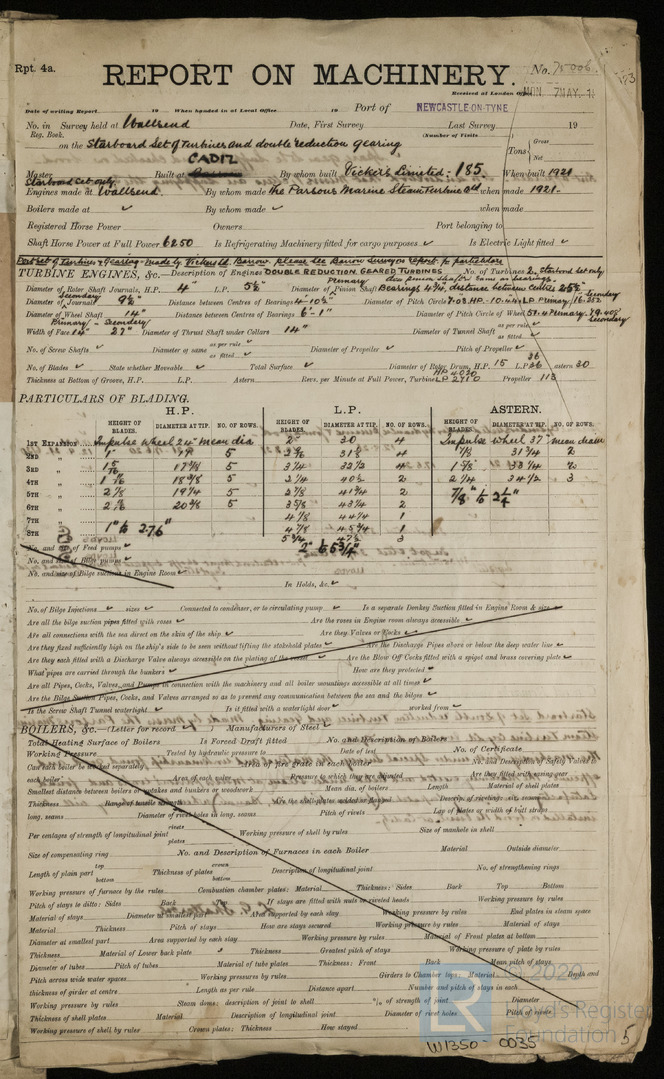 Rpt. 4a.
REPORT ON MACHINERY.
No. 75006
Received at London Office
MON. 7 MAY. 1
Date of writing Report 19 When handed in at Local Office 19 Port of NEWCASTLE-ON-TYNE
No. in Survey held at Wallsend Date, First Survey Last Survey 19
Reg. Book. (Number of Visits )
on the Starboard Set of Turbines and double reduction gearing
Tons Gross Net
CADIZ
Master Built at Barrow By whom built Vickers Limited - 185 When built 1921
Starboard set only
Engines made at Wallsend By whom made the Parsons Marine Steam Turbine when made 1921
Boilers made at ✓ By whom made ✓ when made
Registered Horse Power Owners Port belonging to
Shaft Horse Power at Full Power 6250 Is Refrigerating Machinery fitted for cargo purposes ✓ Is Electric Light fitted ✓
Port set of Turbines & Gearing made by Vickers Ld Barrow. Please see Barrow Surveyors report for particulars
TURBINE ENGINES, &c.—Description of Engines DOUBLE REDUCTION GEARED TURBINES No. of Turbines 2 Starboard set only
Diameter of Rotor Shaft Journals, H.P. 4" L.P. 5½" Diameter of Pinion Shaft Primary Bearings 4¼" distance between centres 25½"
Diameter of Journals Secondary 9½" Distance between Centres of Bearings 4'-10½" Diameter of Pitch Circle
Diameter of Wheel Shaft 14" Distance between Centres of Bearings 6'-1" Diameter of Pitch Circle of Wheel 57.4 Primary 79.408 Secondary
Primary - Secondary
Width of Face 14" 27" Diameter of Thrust Shaft under Collars 14" Diameter of Tunnel Shaft as per rule as fitted ✓
No. of Screw Shafts ✓ Diameter of same as per rule as fitted ✓ Diameter of Propeller ✓ Pitch of Propeller ✓
No. of Blades ✓ State whether Moveable ✓ Total Surface ✓ Diameter of Rotor Drum, H.P. 15 L.P. 26 36 astern 30
Thickness at Bottom of Groove, H.P. L.P. Astern Revs. per Minute at Full Power, Turbine HP 4030 LP 2710 Propeller 118
PARTICULARS OF BLADING.
H.P. L.P. ASTERN.
HEIGHT OF BLADES. DIAMETER AT TIP. NO. OF ROWS. HEIGHT OF BLADES. DIAMETER AT TIP. NO. OF ROWS. HEIGHT OF BLADES. DIAMETER AT TIP. NO. OF ROWS.
1ST EXPANSION Impulse wheel 24" mean dia 2" 30 4 Impulse wheel 37" mean diam
2ND " 1" 17 5 31⅛ 4 7/8 31¾ 2
3RD " 17⅝ 5 3¼ 32½ 4 33¼ 2
4TH " 18⅜ 5 2¼ 40½ 2 2¼ 34½ 3
5TH " 2⅛ 19¼ 5 2⅞ 41¾ 2 7/8" to 2¼"
6TH " 20⅝ 5 3⅝ 43¼ 2
7TH " 4⅞ 44¾ 1
8TH " 1" to 2.76" 4⅞ 45¾ 1
5¾ 47½ 3
2" to 5¾"
No. and size of Feed pumps ✓
No. and size of Bilge pumps ✓
No. and size of Bilge suctions in Engine Room ✓
In Holds, &c. ✓
No. of Bilge Injections ✓ sizes ✓ Connected to condenser, or to circulating pump ✓ Is a separate Donkey Suction fitted in Engine Room & size ✓
Are all the bilge suction pipes fitted with roses ✓ Are the roses in Engine room always accessible ✓
Are all connections with the sea direct on the skin of the ship ✓ Are they Valves or Cocks ✓
Are they fixed sufficiently high on the ship's side to be seen without lifting the stokehold plates ✓ Are the Discharge Pipes above or below the deep water line ✓
Are they each fitted with a Discharge Valve always accessible on the plating of the vessel ✓ Are the Blow Off Cocks fitted with a spigot and brass covering plate ✓
What pipes are carried through the bunkers ✓ How are they protected ✓
Are all Pipes, Cocks, Valves, and Pumps in connection with the machinery and all boiler mountings accessible at all times ✓
Are the Bilge Suction Pipes, Cocks, and Valves arranged so as to prevent any communication between the sea and the bilges ✓
Is the Screw Shaft Tunnel watertight ✓ Is it fitted with a watertight door ✓ worked from ✓
BOILERS, &c.—(Letter for record ✓ ) Manufacturers of Steel ✓
Total Heating Surface of Boilers Is Forced Draft fitted No. and Description of Boilers
Working Pressure Tested by hydraulic pressure to Date of test No. of Certificate
Can each boiler be worked separately Area of fire grate in each boiler No. and Description of Safety Valves to
each boiler Area of each valve Pressure to which they are adjusted Are they fitted with easing gear
Smallest distance between boilers or uptakes and bunkers or woodwork Mean dia. of boilers Length Material of shell plates
Thickness Range of tensile strength Are the shell plates welded or flanged Descrip. of riveting: cir. seams
long. seams Diameter of rivet holes in long. seams Pitch of rivets Lap of plates or width of butt straps
Per centages of strength of longitudinal joint rivets plates Working pressure of shell by rules Size of manhole in shell
Size of compensating ring No. and Description of Furnaces in each Boiler Material Outside diameter
Length of plain part top bottom Thickness of plates crown bottom Description of longitudinal joint No. of strengthening rings
Working pressure of furnace by the rules Combustion chamber plates: Material Thickness: Sides Back Top Bottom
Pitch of stays to ditto: Sides Back Top If stays are fitted with nuts or riveted heads Working pressure by rules
Material of stays Diameter at smallest part Area supported by each stay Working pressure by rules End plates in steam space
Material Thickness Pitch of stays How are stays secured Working pressure by rules Material of stays
Diameter at smallest part Area supported by each stay Working pressure by rules Material of Front plates at bottom
Thickness Material of Lower back plate Thickness Greatest pitch of stays Working pressure of plate by rules
Diameter of tubes Pitch of tubes Material of tube plates Thickness: Front Back Mean pitch of stays
Pitch across wide water spaces Working pressures by rules Girders to Chamber tops: Material Depth and
thickness of girder at centre Length as per rule Distance apart Number and pitch of stays in each
Working pressure by rules Steam dome: description of joint to shell % of strength of joint Diameter
Thickness of shell plates Material Description of longitudinal joint Diameter of rivet holes Pitch of rivets
Working pressure of shell by rules Crown plates: Thickness How stayed
© 2020
Lloyd's Register
Foundation
W1350-0035
5